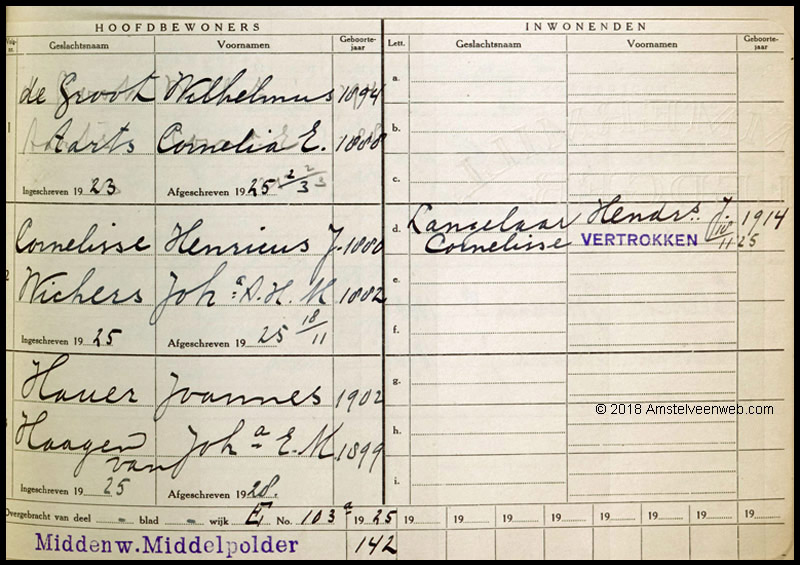 HOOFDBEWONERS
Geslachtsnaam Voornamen Geboorte-jaar
de Groot Wilhelmus 1894
1 Aarts Cornelia E. 1888
Ingeschreven 19 23 Afgeschreven 19 25 2/3
Cornelisse Henricus J. 1880
2 Wichers Joh.a A. H. M 1882
Ingeschreven 19 25 Afgeschreven 19 25 18/11
Hauer Joannes 1902
Haagen van Joh.a E. M 1899
Ingeschreven 19 25 Afgeschreven 1928.
INWONENDEN
Lett. Geslachtsnaam Voornamen Geboorte-jaar
a.
b.
c.
d. Langelaar Hendrs. J. 1914
Cornelisse VERTROKKEN 18/11 25
e.
f.
g.
© 2018 Amstelveenweb.com
h.
i.
Overgebracht van deel - blad - wijk E No. 103a 1925 19 19 19 19 19 19 19 19
Middenw. Middelpolder 142